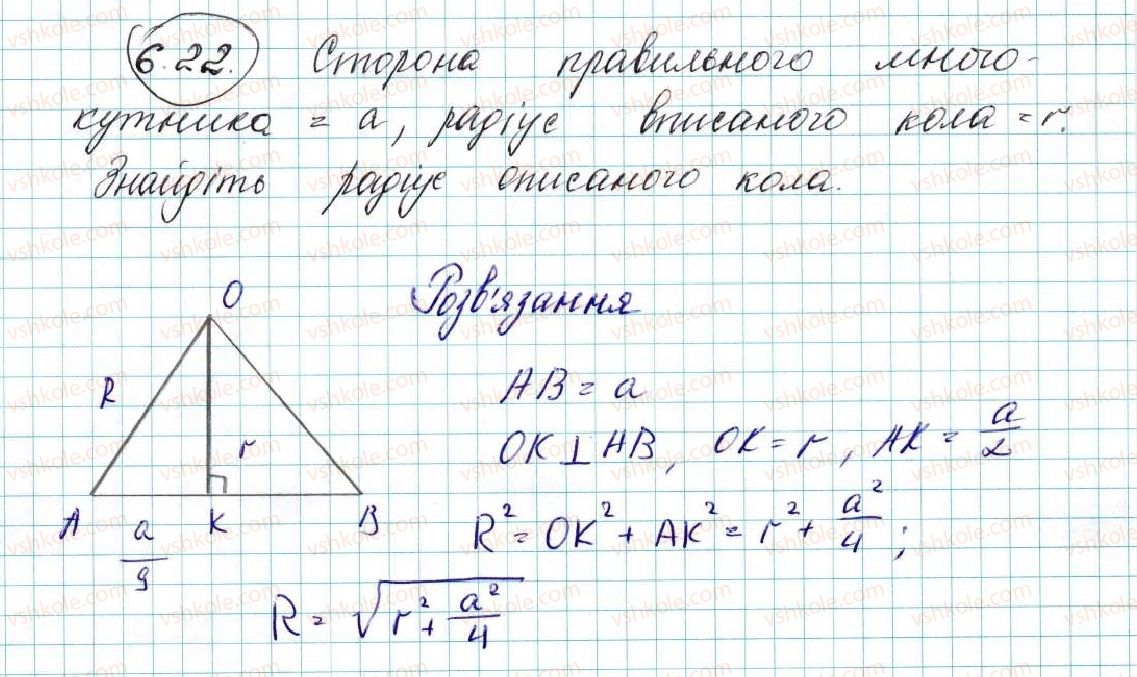 6.22. Сторона правильного много-
кутника = a, радіус вписаного кола = r.
Знайдіть радіус описаного кола.
Розв'язання
O
R
r
A K B
a/9
AB = a
OK ⊥ AB, OK = r, AK = a/2
R² = OK² + AK² = r² + a²/4;
R = √(r² + a²/4)